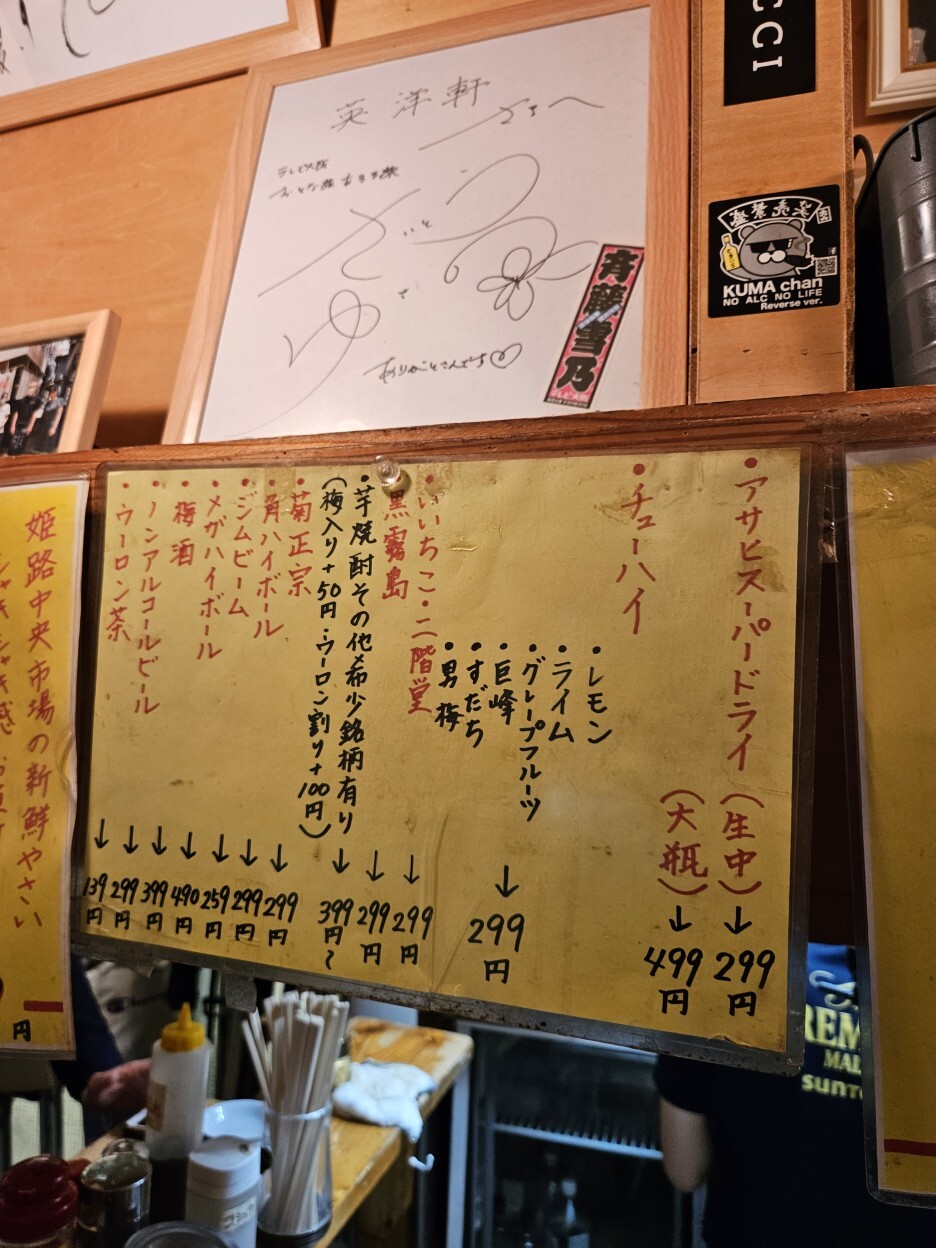 CCI
英洋軒
さんへ
テレビ大阪
さいとう
ゆきの
ありがとさんです♡
斉藤雪乃
KUMA chan
NO ALC NO LIFE
Reverse ver.
•アサヒスーパードライ(生中)→299円
(大瓶)→499円
•チューハイ
•レモン
•ライム
•グレープフルーツ
•巨峰
•すだち
•男梅
→299円
•いいちこ・二階堂→299円
•黒霧島→299円
•芋焼酎その他希少銘柄有り→399円〜
(梅入り+50円・ウーロン割り+100円)
•菊正宗→299円
•角ハイボール→299円
•ジムビーム→259円
•メガハイボール→490円
•梅酒→399円
•ノンアルコールビール→299円
•ウーロン茶→139円
姫路中央市場の新鮮やさい
シャキシャキ感
円
MAL
SUNTO